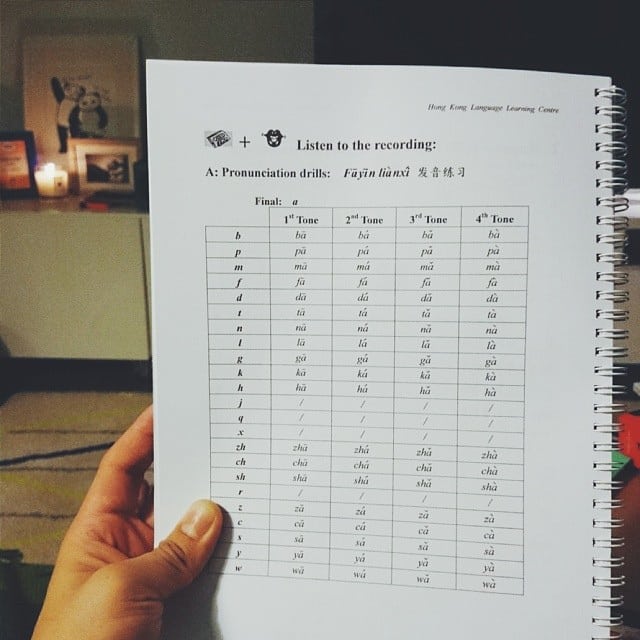 Hong Kong Language Learning Centre
+ Listen to the recording:
A: Pronunciation drills: Fāyīn liànxí 发音练习
Final: a
1st Tone 2nd Tone 3rd Tone 4th Tone
b bā bá bǎ bà
p pā pá pǎ pà
m mā má mǎ mà
f fā fá fǎ fà
d dā dá dǎ dà
t tā tá tǎ tà
n nā ná nǎ nà
l lā lá lǎ là
g gā gá gǎ gà
k kā ká kǎ kà
h hā há hǎ hà
j / / / /
q / / / /
x / / / /
zh zhā zhá zhǎ zhà
ch chā chá chǎ chà
sh shā shá shǎ shà
r / / / /
z zā zá zǎ zà
c cā cá cǎ cà
s sā sá sǎ sà
y yā yá yǎ yà
w wā wá wǎ wà